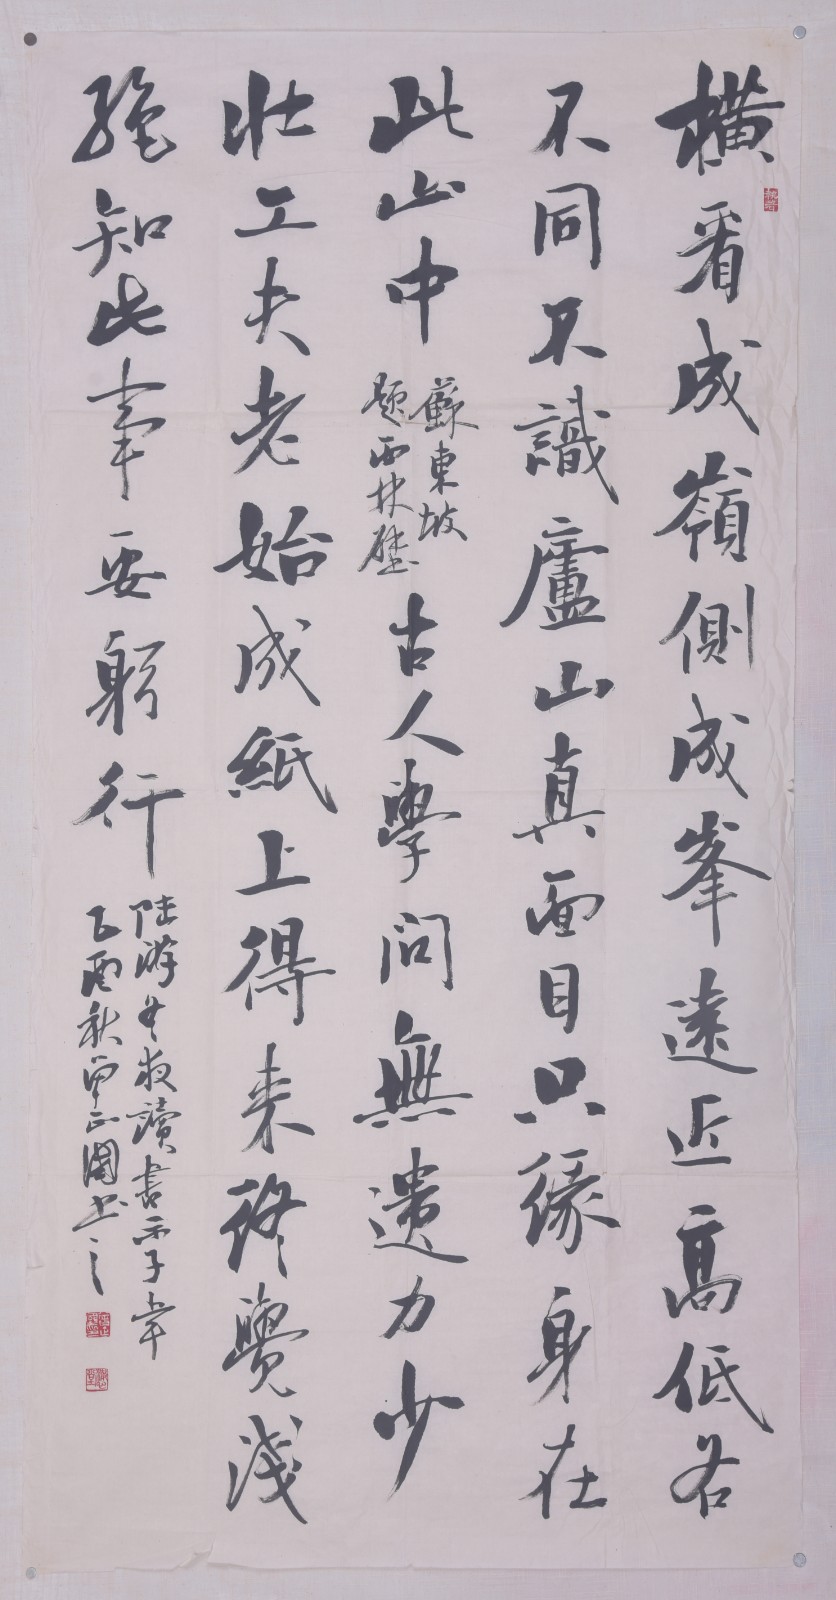 橫看成嶺側成峯遠近高低各
不同不識廬山真面目只緣身在
此山中
蘇東坡
題西林壁
古人學問無遺力少
壯工夫老始成紙上得來終覺淺
絕知此事要躬行
陸游冬夜讀書示子聿
乙酉秋
正國书之